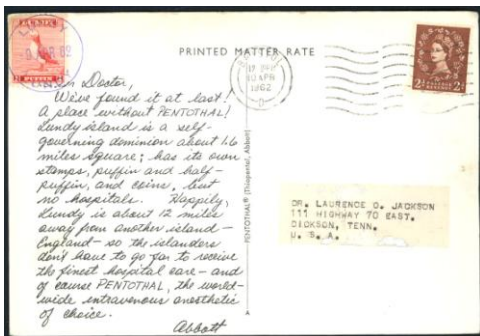 PRINTED MATTER RATE
9 APR 62
PUFFIN
10 APR
1962
2D
2D
POSTAGE
REVENUE
Dear Doctor,
We've found it at last!
A place without PENTOTHAL!
Lundy island is a self-
governing dominion about 1.6
miles square; has its own
stamps, puffin and half-
puffin, and coins, but
no hospitals. Happily,
Lundy is about 12 miles
away from another island –
England – so the islanders
don't have to go far to receive
the finest hospital care – and
of course PENTOTHAL, the world-
wide intravenous anesthetic
of choice.
Abbott
PENTOTHAL® (Thiopental, Abbott)
DR. LAURENCE O. JACKSON
111 HIGHWAY 70 EAST.
DICKSON, TENN.
U. S. A.